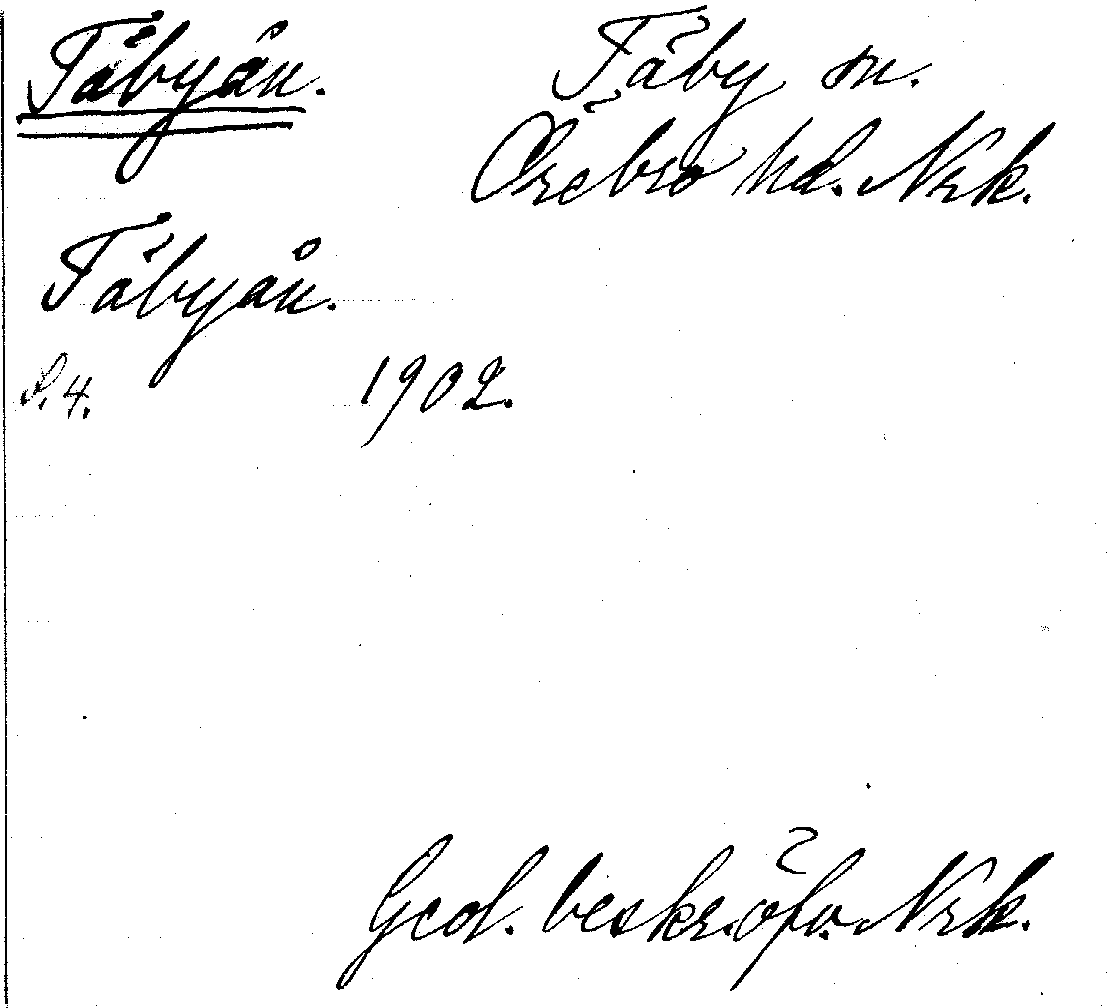 Täbyån.
Täby sn.
Örebro hd. Nrk.
Täbyån.
S. 4. 1902.
Geol. beskr. öfv. Nrk.